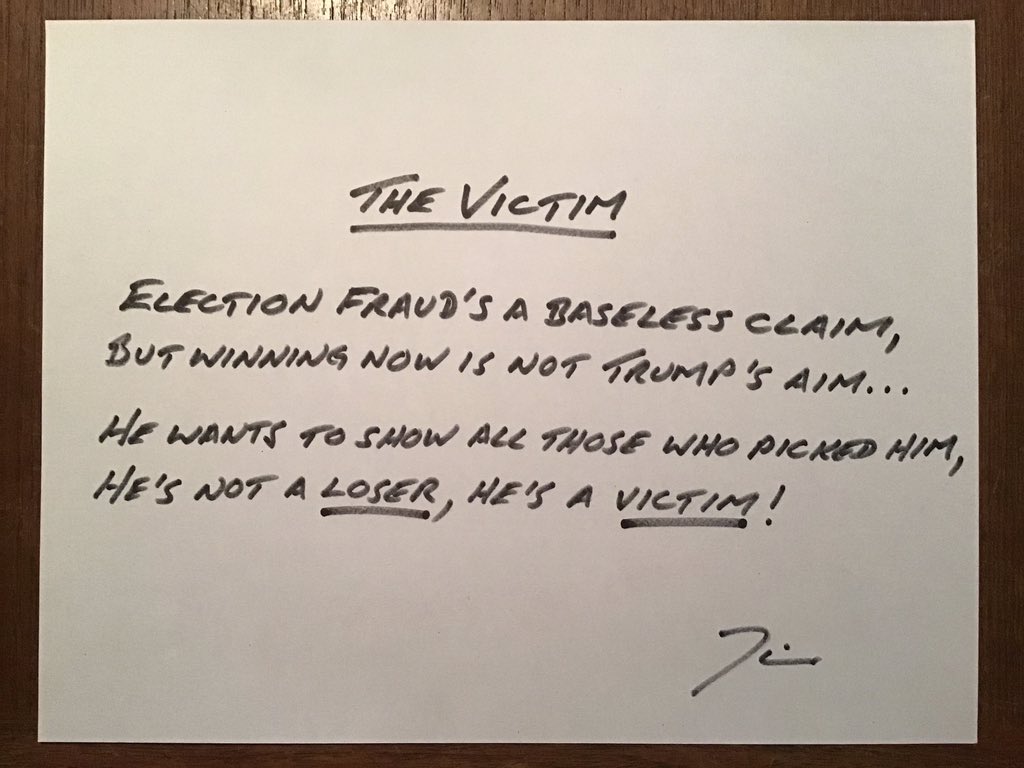 THE VICTIM
ELECTION FRAUD'S A BASELESS CLAIM,
BUT WINNING NOW IS NOT TRUMP'S AIM...
HE WANTS TO SHOW ALL THOSE WHO PICKED HIM,
HE'S NOT A LOSER, HE'S A VICTIM!